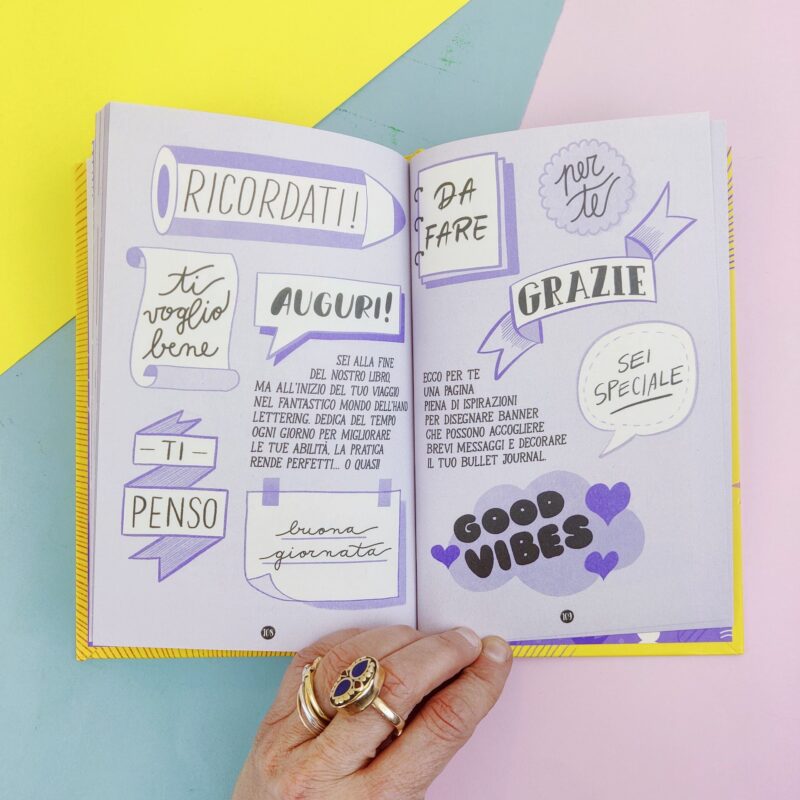 RICORDATI!
ti
voglio
bene
AUGURI!
SEI ALLA FINE
DEL NOSTRO LIBRO,
MA ALL'INIZIO DEL TUO VIAGGIO
NEL FANTASTICO MONDO DELL'HAND
LETTERING. DEDICA DEL TEMPO
OGNI GIORNO PER MIGLIORARE
LE TUE ABILITÀ. LA PRATICA
RENDE PERFETTI... O QUASI!
- TI -
PENSO
buona
giornata
108
DA
FARE
per
te
GRAZIE
SEI
SPECIALE
ECCO PER TE
UNA PAGINA
PIENA DI ISPIRAZIONI
PER DISEGNARE BANNER
CHE POSSONO ACCOGLIERE
BREVI MESSAGGI E DECORARE
IL TUO BULLET JOURNAL.
GOOD
VIBES
109